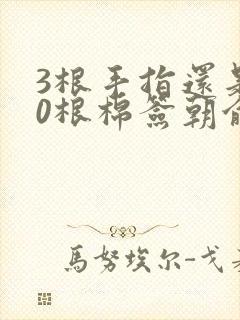 3根手指還
0根棉簽朝
馬努埃尔-戈